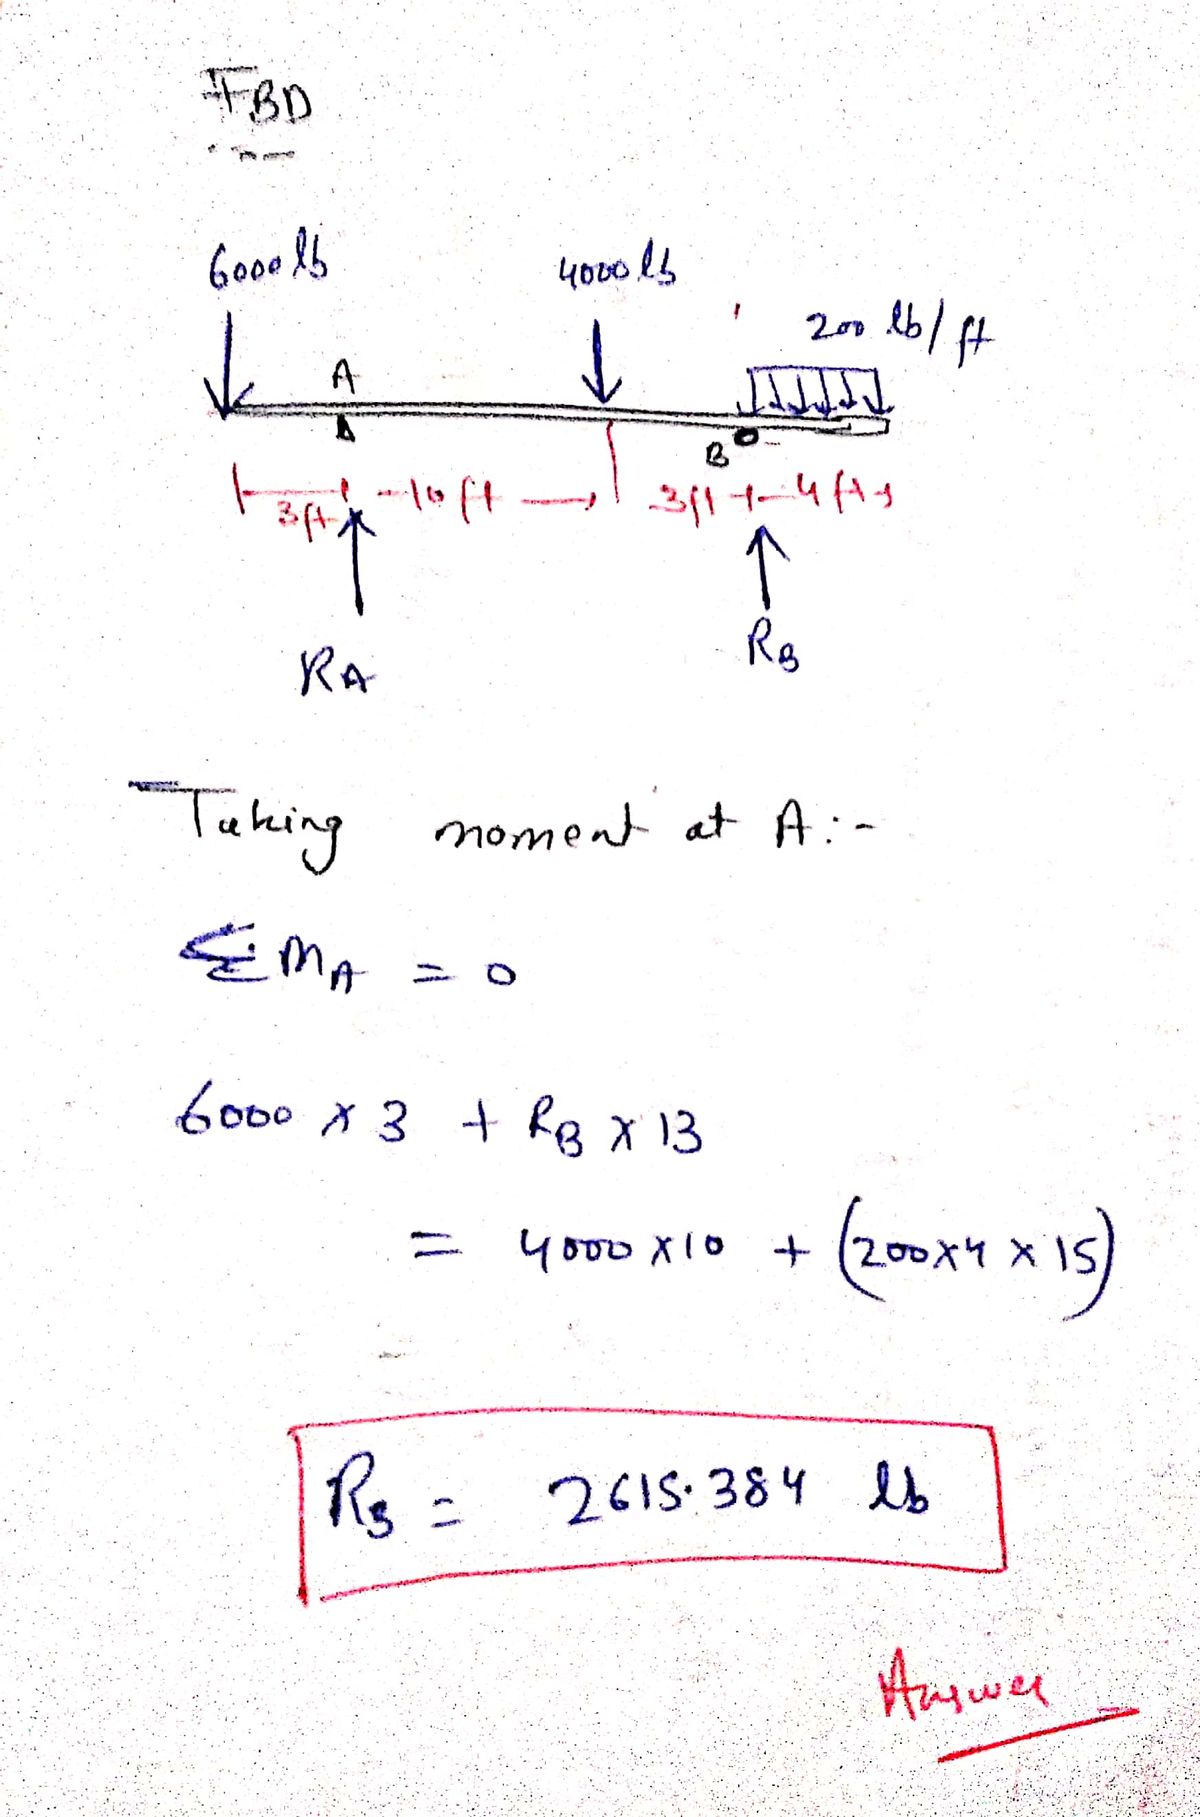 FBD
6000 lb 4000 lb
200 lb/ft
A
B
3ft 10 ft 3ft 4 ft
RA RB
Taking moment at A:-
ΣMA = 0
6000 x 3 + RB x 13
= 4000 x 10 + (200x4 x 15)
RB = 2615.384 lb
Answer